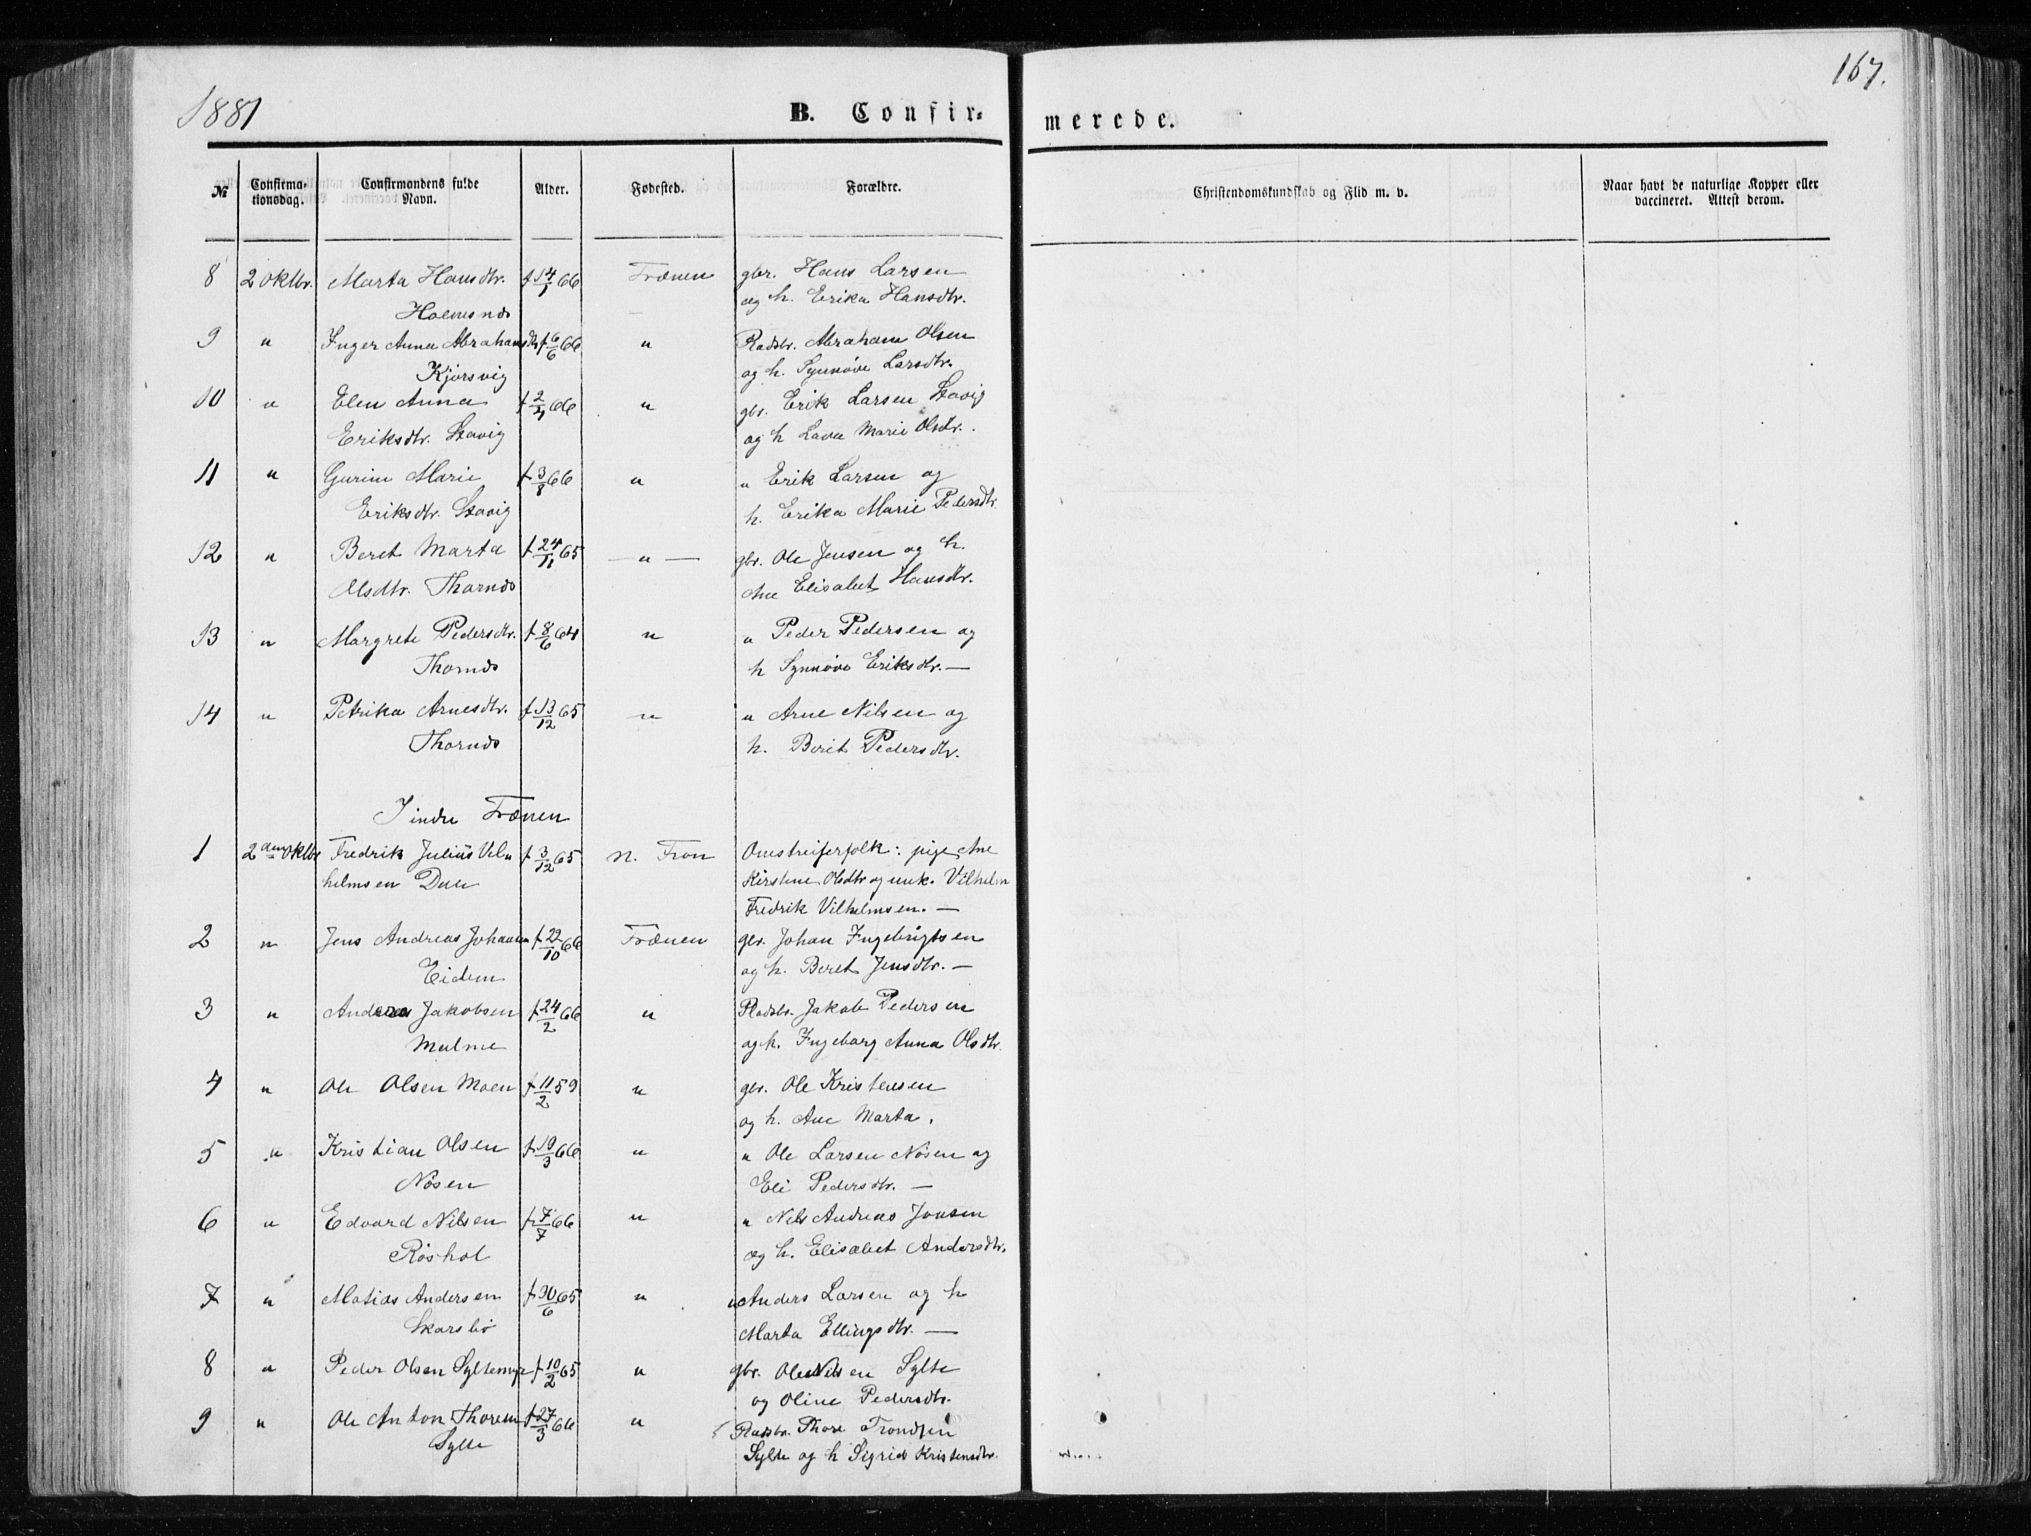 1881
167.
B. Confir-
merede.
№ Confirmationsdag. Confirmandens fulde Navn. Alder. Fødested. Forældre. Christendomskundskab og Flid m. v. Naar havt de naturlige Kopper eller vaccineret. Attest derom.
8 2 oktbr. Marta Hansdtr. f 14/1 66 Frænen gbr. Hans Larsen
Holmsnæs og h. Erika Hansdtr.
9 " Inger Anna Abrahamsdtr f 6/6 66 " Pladsbr. Abraham Olsen
Kjørsvig og h. Synnøve Larsdtr.
10 " Elen Anna 66 " gbr. Erik Larsen Stavig
Eriksdtr. Stavig og h Lava Marie Olsdtr.
11 " Gurine Marie f 3/8 66 " " Erik Larsen og
Eriksdtr. Stavig h. Erika Marie Pedersdtr.
12 " Beret Marta f 24/11 65 — " — gbr. Ole Jensen og h.
Olsdtr. Thornæs Ane Elisabet Hansdtr.
13 " Margrete Pedersdtr. f 8/6 64 " " Peder Pedersen og
Thornæs h Synnøve Eriksdtr. —
14 " Petrika Arnesdtr. f 13/12 65 " " Arne Nilsen og
Thornæs h. Beret Pedersdtr.
Indre Frænen
1 2den oktbr Fredrik Julius Vil- f 3/12 65 N. Fron Omstreiferfolk: pige Ane
helmsen Due Kirstine Olsdtr og unk. Vilhelm
Fredrik Vilhelmsen. —
2 " Jens Andreas Johansen f 22/10 66 Frænen gbr. Johan Ingebrigtsen
Eidem og h. Beret Jensdtr. —
3 " Andreas Jakobsen f 24/2 66 " Pladsbr. Jakob Pedersen
Malme og h. Ingeborg Anna Olsdtr.
4 " Ole Olsen Moen f 11/2 59 " gbr. Ole Kristensen
og h. Ane Marta.
5 " Kristian Olsen f 19/3 66 " " Ole Larsen Nøsen og
Nøsen Eli Pedersdtr. —
6 " Edvard Nilsen f 7/7 66 " " Nils Andreas Jonsen
Røshol og h. Elisabet Andersdtr.
7 " Matias Andersen f 30/6 65 " " Anders Larsen og h
Skarsbø Marta Ellingsdtr. —
8 " Peder Olsen Syltemyr f 10/2 65 " gbr. Ole Nilsen Sylte
og Oline Pedersdtr.
9 " Ole Anton Thoresen f 27/3 66 " Pladsbr. Thore Trondsen
Sylte Sylte og h Sigrid Kristensdtr.